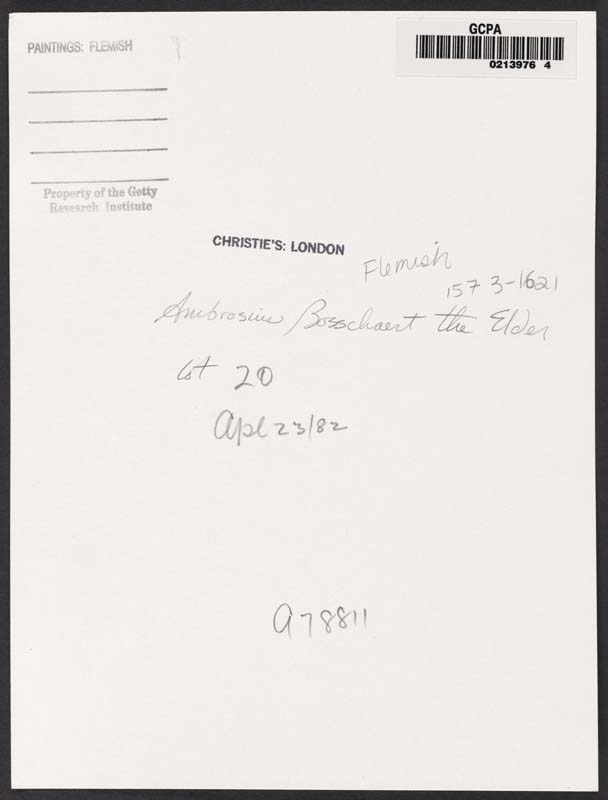 PAINTINGS: FLEMISH
GCPA
0213976 4
Property of the Getty
Research Institute
CHRISTIE'S: LONDON
Flemish
1573-1621
Ambrosius Bosschaert the Elder
lot 20
Apl 23/82
a78811